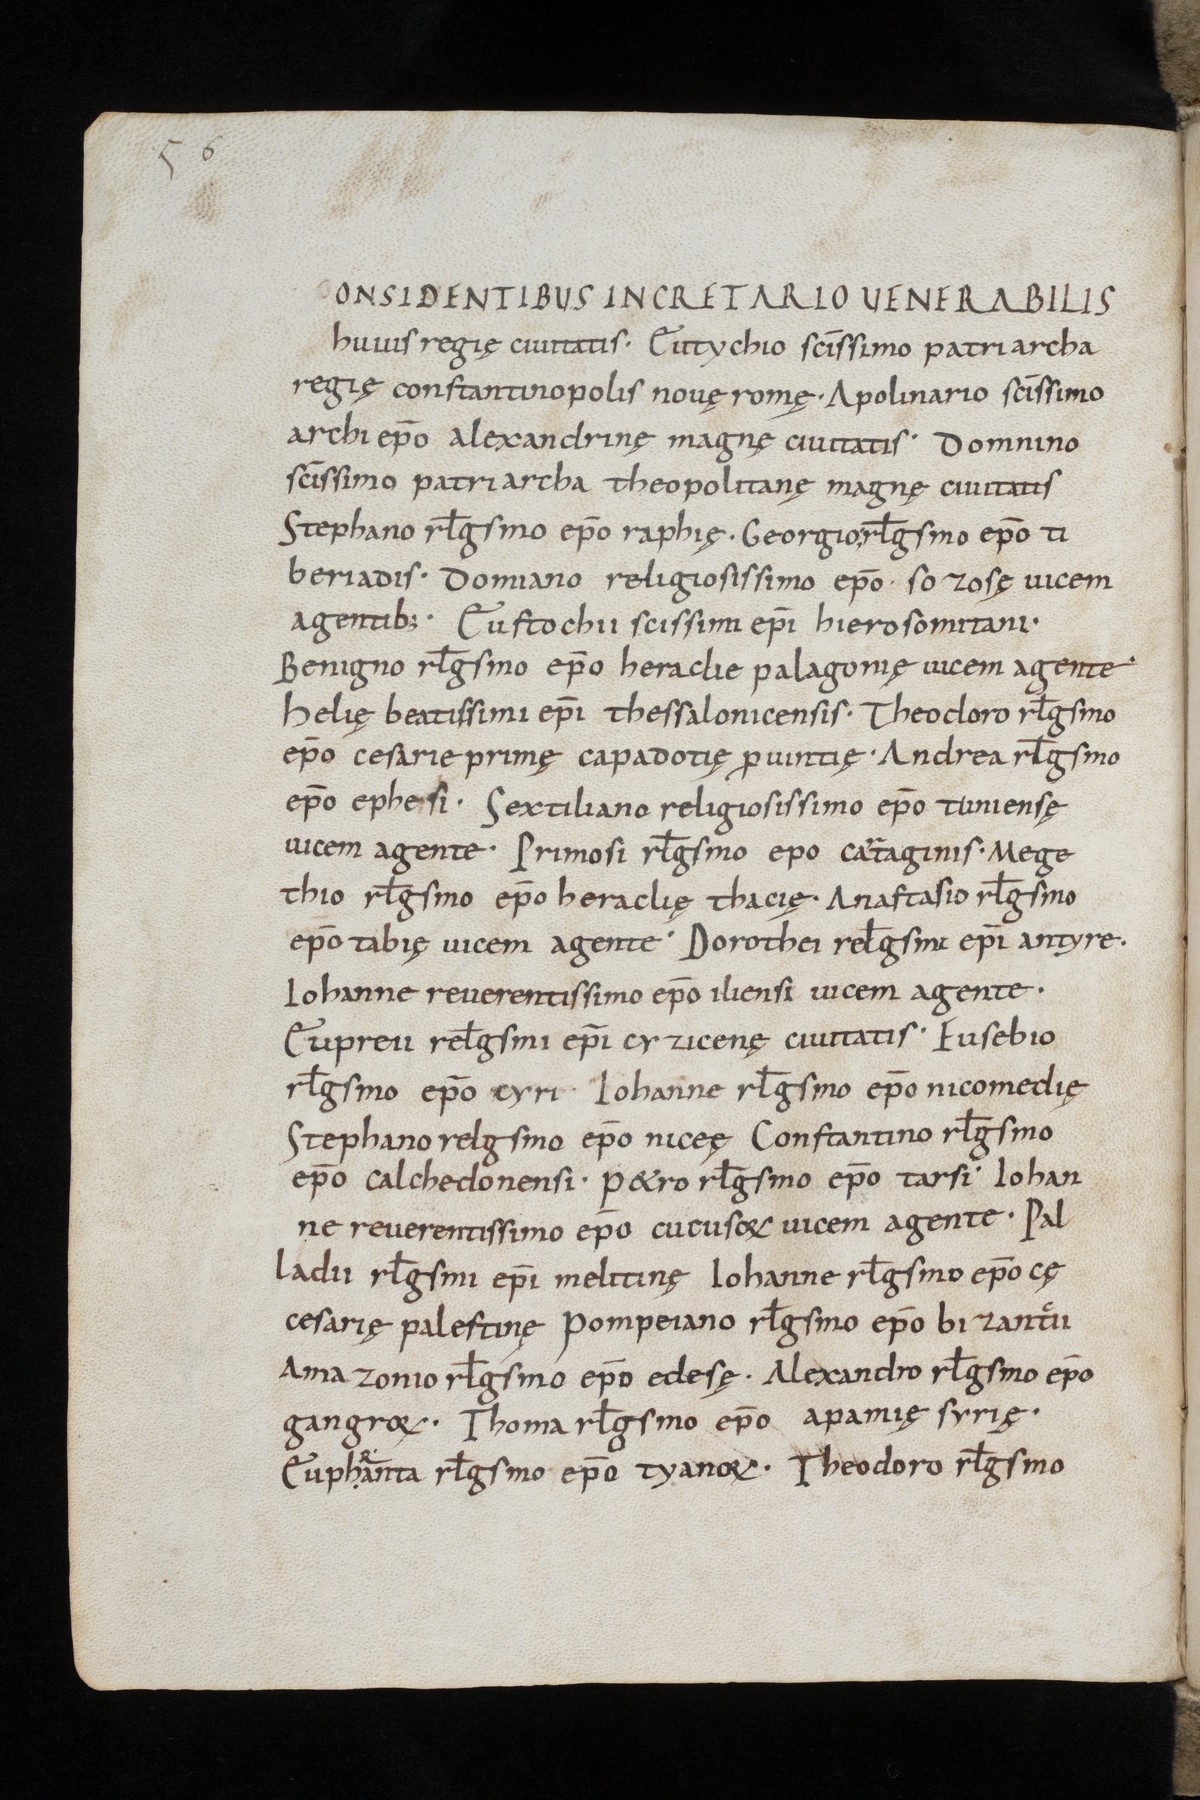 56
ONSIDENTIBUS INCRETARIO UENERABILIS
huius regię ciuitatis· Eutychio sc̄issimo patriarcha
regię constantinopolis nouę romę· Apolinario sc̄issimo
archiep̄o alexandrinę magnę ciuitatis· Domnino
sc̄issimo patriarcha theopolitanę magnę ciuitatis
Stephano rƚgsmo ep̄o raphię· Georgio rƚgsmo ep̄o ti
beriadis· Domiano religiosissimo ep̄o· so zosę uicem
agentib;· Eustochii scissimi ep̄i hierosomitani·
Benigno rƚgsmo ep̄o heraclie palagonię uicem agente·
helię beatissimi ep̄i thessalonicensis· Theodoro rƚgsmo
ep̄o cesarie primę capadotię ꝓuintię· Andrea rƚgsmo
ep̄o ephesi· Sextiliano religiosissimo ep̄o tuniensę
uicem agente· Primosi rƚgsmo epo cartaginis· Mege
thio rƚgsmo ep̄o heraclię thacię· Anastasio rƚgsmo
ep̄o tabię uicem agente· Dorothei reƚgsmi ep̄i antyre·
Iohanne reuerentissimo ep̄o iliensi uicem agente·
Eupreii reƚgsmi ep̄i cyzicenę ciuitatis· Eusebio
rƚgsmo ep̄o cyri· Iohanne rƚgsmo ep̄o nicomedię
Stephano relgsmo ep̄o niceę Constantino rƚgsmo
ep̄o calchedonensi· P&ro rƚgsmo ep̄o tarsi· Iohan
ne reuerentissimo ep̄o cucusoꝝ uicem agente· Pal
ladii rƚgsmi ep̄i melitinę Iohanne rƚgsmo ep̄o cę
cesarię palestinę Pompeiano rƚgsmo ep̄o bizanteii
Amazonio rƚgsmo ep̄o edesę· Alexandro rƚgsmo ep̄o
gangroꝝ· Thoma rƚgsmo ep̄o apamię syrię·
Euphranta rƚgsmo ep̄o tyanoꝝ· Theodoro rƚgsmo